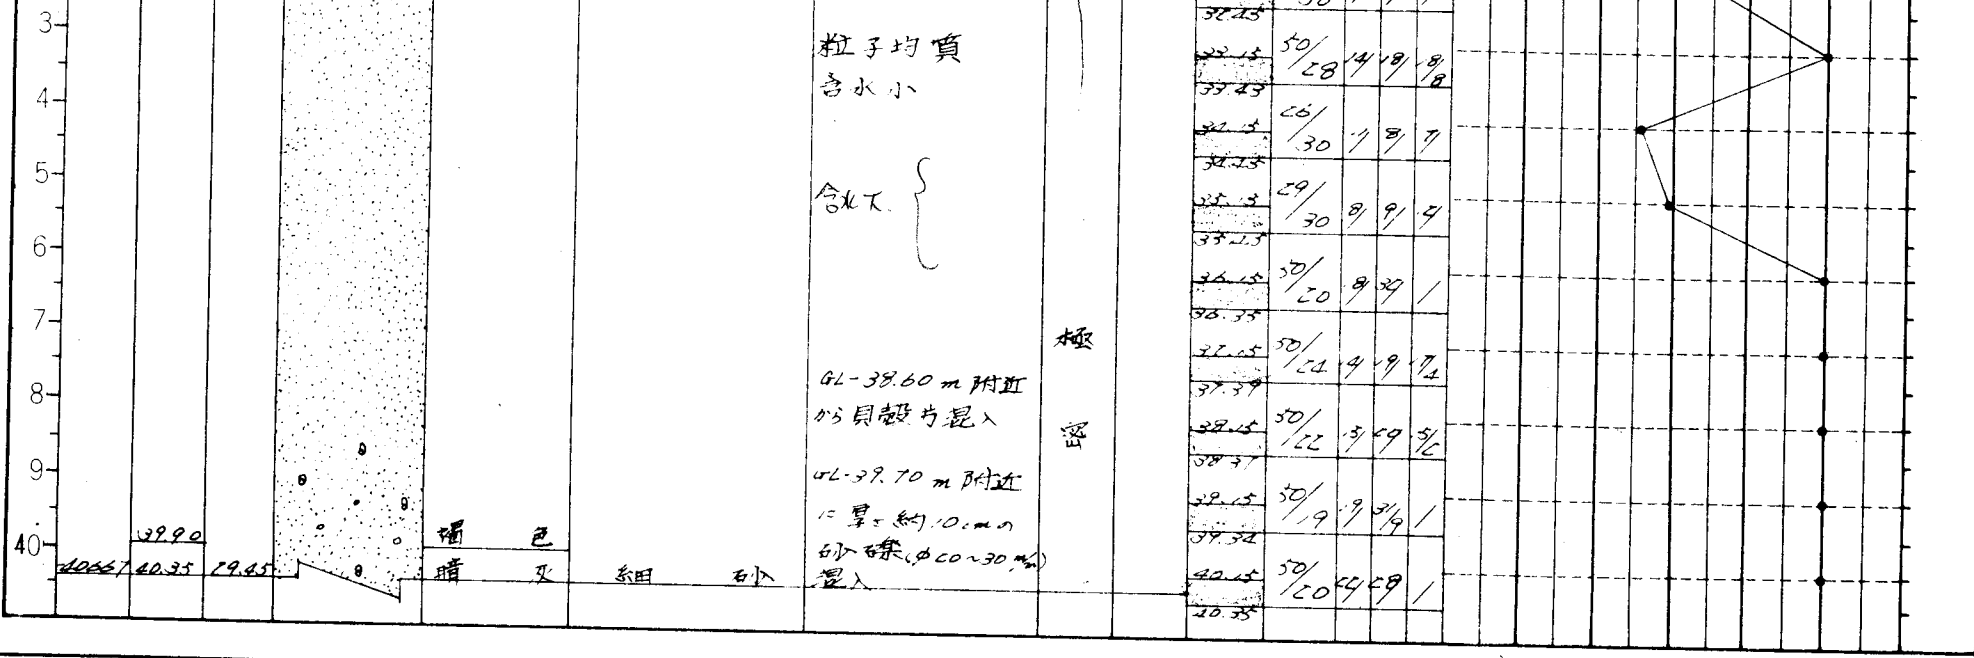 3
4
5
6
7
8
9
40
39.90
40.35 29.45
褐 色
暗 灰
細 砂
粒子均質
含水小
含水大
GL-38.60 m 附近
から貝殻片混入
GL-39.70 m 附近
に厚さ約10cmの
砂礫(φ20~30 m/m)
混入
極
密
32.45
33.15 50/28 14 18 18/8
33.43
34.15 26/30 7 8
34.45
35.15 29/30 8 9
35.45
36.15 50/20
36.35
37.15 50/24
37.39
38.15 50/22
38.37
39.15 50/19
39.34
40.15 50/20
40.35